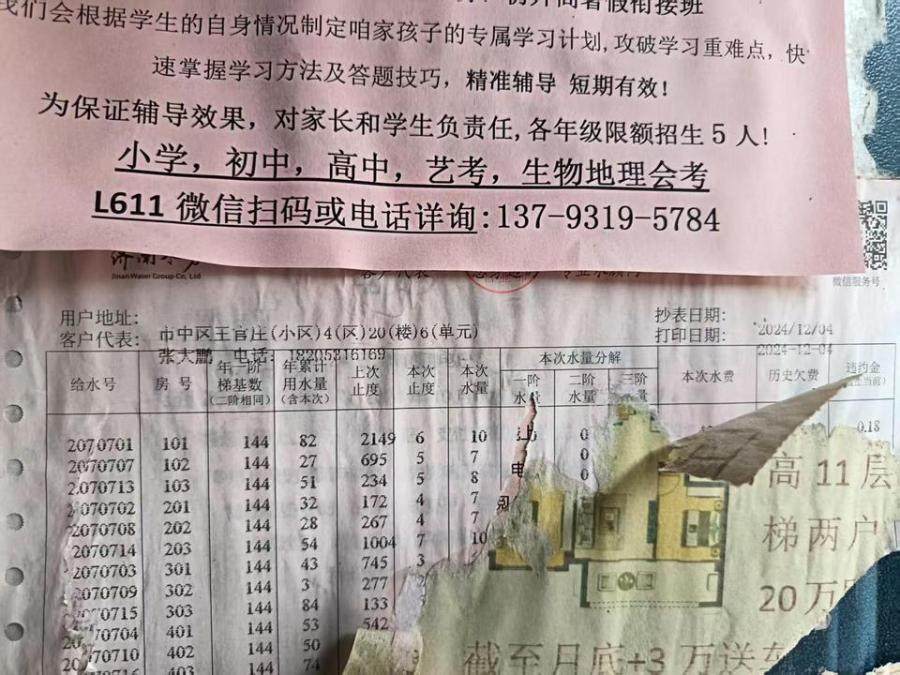 初升高暑假衔接班
我们会根据学生的自身情况制定咱家孩子的专属学习计划,攻破学习重难点，快
速掌握学习方法及答题技巧，精准辅导 短期有效!
为保证辅导效果，对家长和学生负责任,各年级限额招生5人!
小学，初中，高中，艺考，生物地理会考
L611 微信扫码或电话详询:137-9319-5784
Jinan Water Group Co., Ltd
客户代表
微信服务号
用户地址: 市中区王官庄(小区)4(区)20(楼)6(单元) 抄表日期: 2024/12/04
客户代表: 张大鹏 电话: 18205316169 打印日期: 2024-12-04
给水号 房 号 年一阶梯基数(二阶相同) 年累计用水量(含本次) 上次止度 本次止度 本次水量 本次水量分解 一阶水量 二阶水量 三阶 本次水费 历史欠费 违约金
2070701 101 144 82 2149 6 10 0 0.18
2070707 102 144 27 695 5 7 0
2070713 103 144 51 234 5 8 0
2070702 201 144 32 172 4 7
2070708 202 144 28 267 4 7
2070714 203 144 54 1004 7 10
2070703 301 144 43 745 3
2070709 302 144 3 277
2070715 303 144 84 133
2070704 401 144 53 542
2070710 402 144 50
403 144 74
高11层
梯两户
20万
截至月底+3万送车